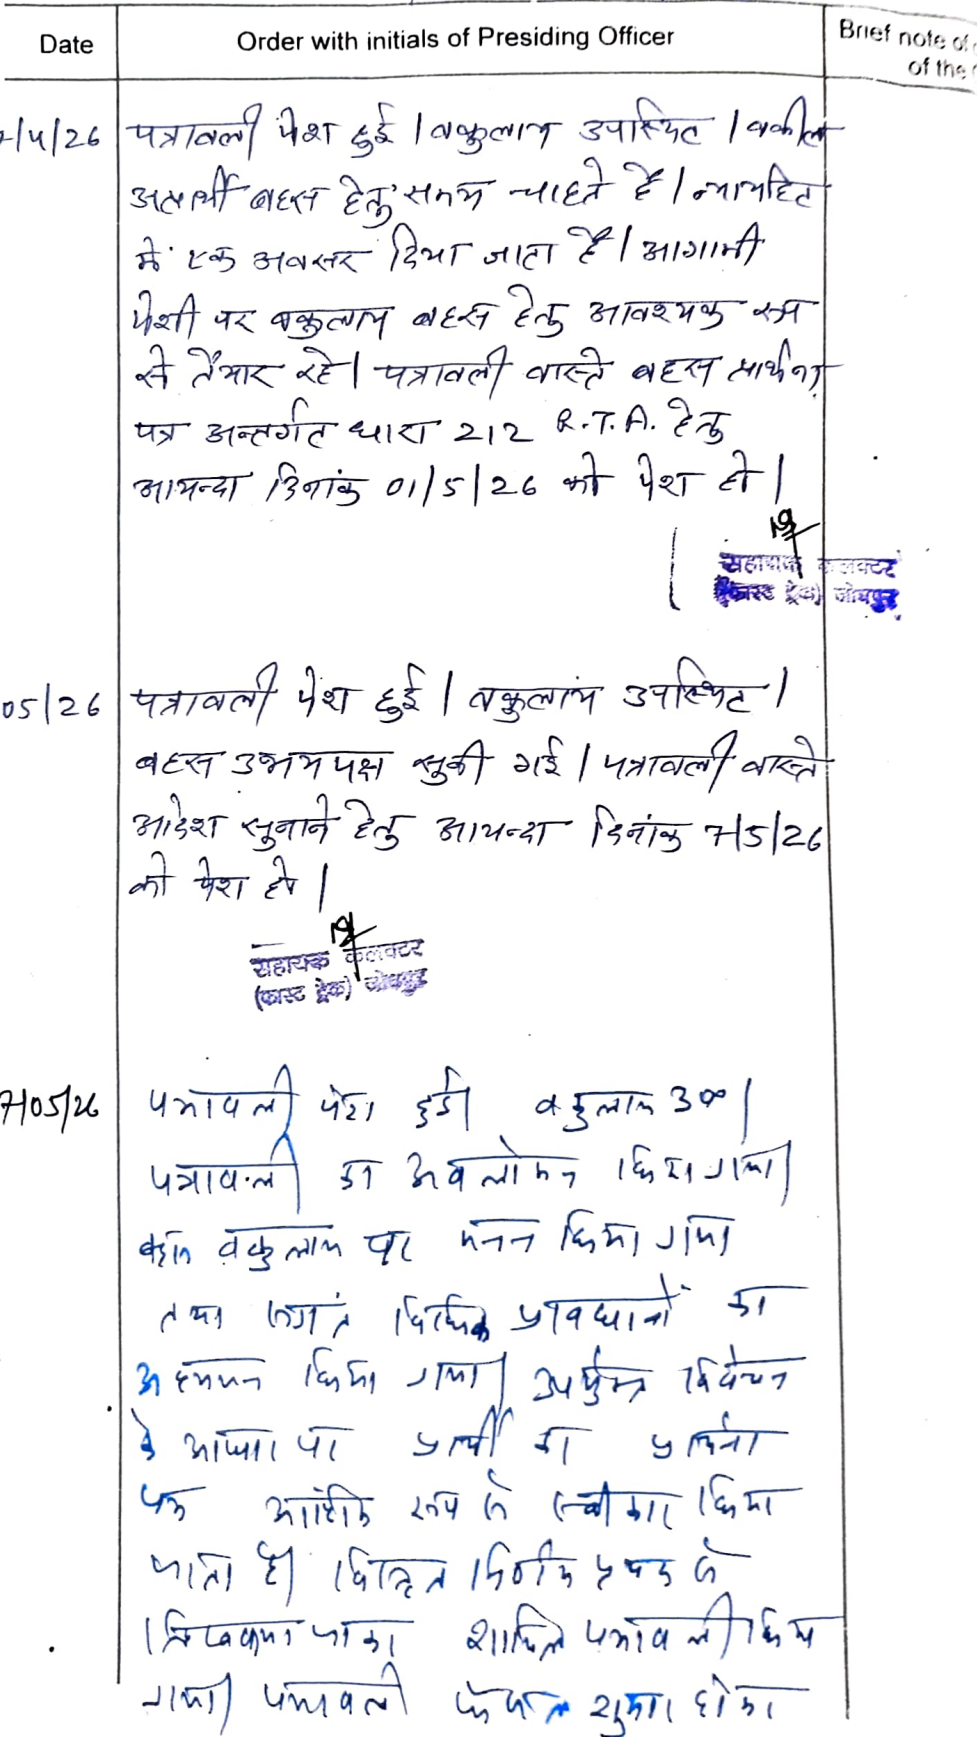 Date
Order with initials of Presiding Officer
Brief note of
of the
/4/26 पत्रावली पेश हुई । वकुलाय उपस्थित । वकील
अप्रार्थी बहस हेतु समय चाहते है । न्यायहित
में एक अवसर दिया जाता है । आगामी
पेशी पर वकुलाय बहस हेतु आवश्यक रूप
से तैयार रहे । पत्रावली वास्ते बहस प्रार्थना
पत्र अन्तर्गत धारा 212 R.T.A. हेतु
आयन्दा दिनांक 01/5/26 को पेश हो ।
सहायक कलक्टर
(फास्ट ट्रेक) जोधपुर
05/26 पत्रावली पेश हुई । वकुलाय उपस्थित ।
बहस उभयपक्ष सुनी गई । पत्रावली वास्ते
आदेश सुनाने हेतु आयन्दा दिनांक 7/5/26
को पेश हो ।
सहायक कलक्टर
(फास्ट ट्रेक) जोधपुर
7/05/26 पत्रावली पेश हुई। वकुलाय उ०।
पत्रावली का अवलोकन किया गया।
बहस वकुलाय पर मनन किया गया
तथा विधिक प्रावधानों का
अध्ययन किया गया। उपर्युक्त विवेचन
के आधार पर प्रार्थी का प्रार्थना
पत्र आंशिक रूप से स्वीकार किया
जाता है। विस्तृत निर्णय पृथक से
लिखवाया जाकर शामिल पत्रावली किया
गया। पत्रावली फैसल शुमार होकर